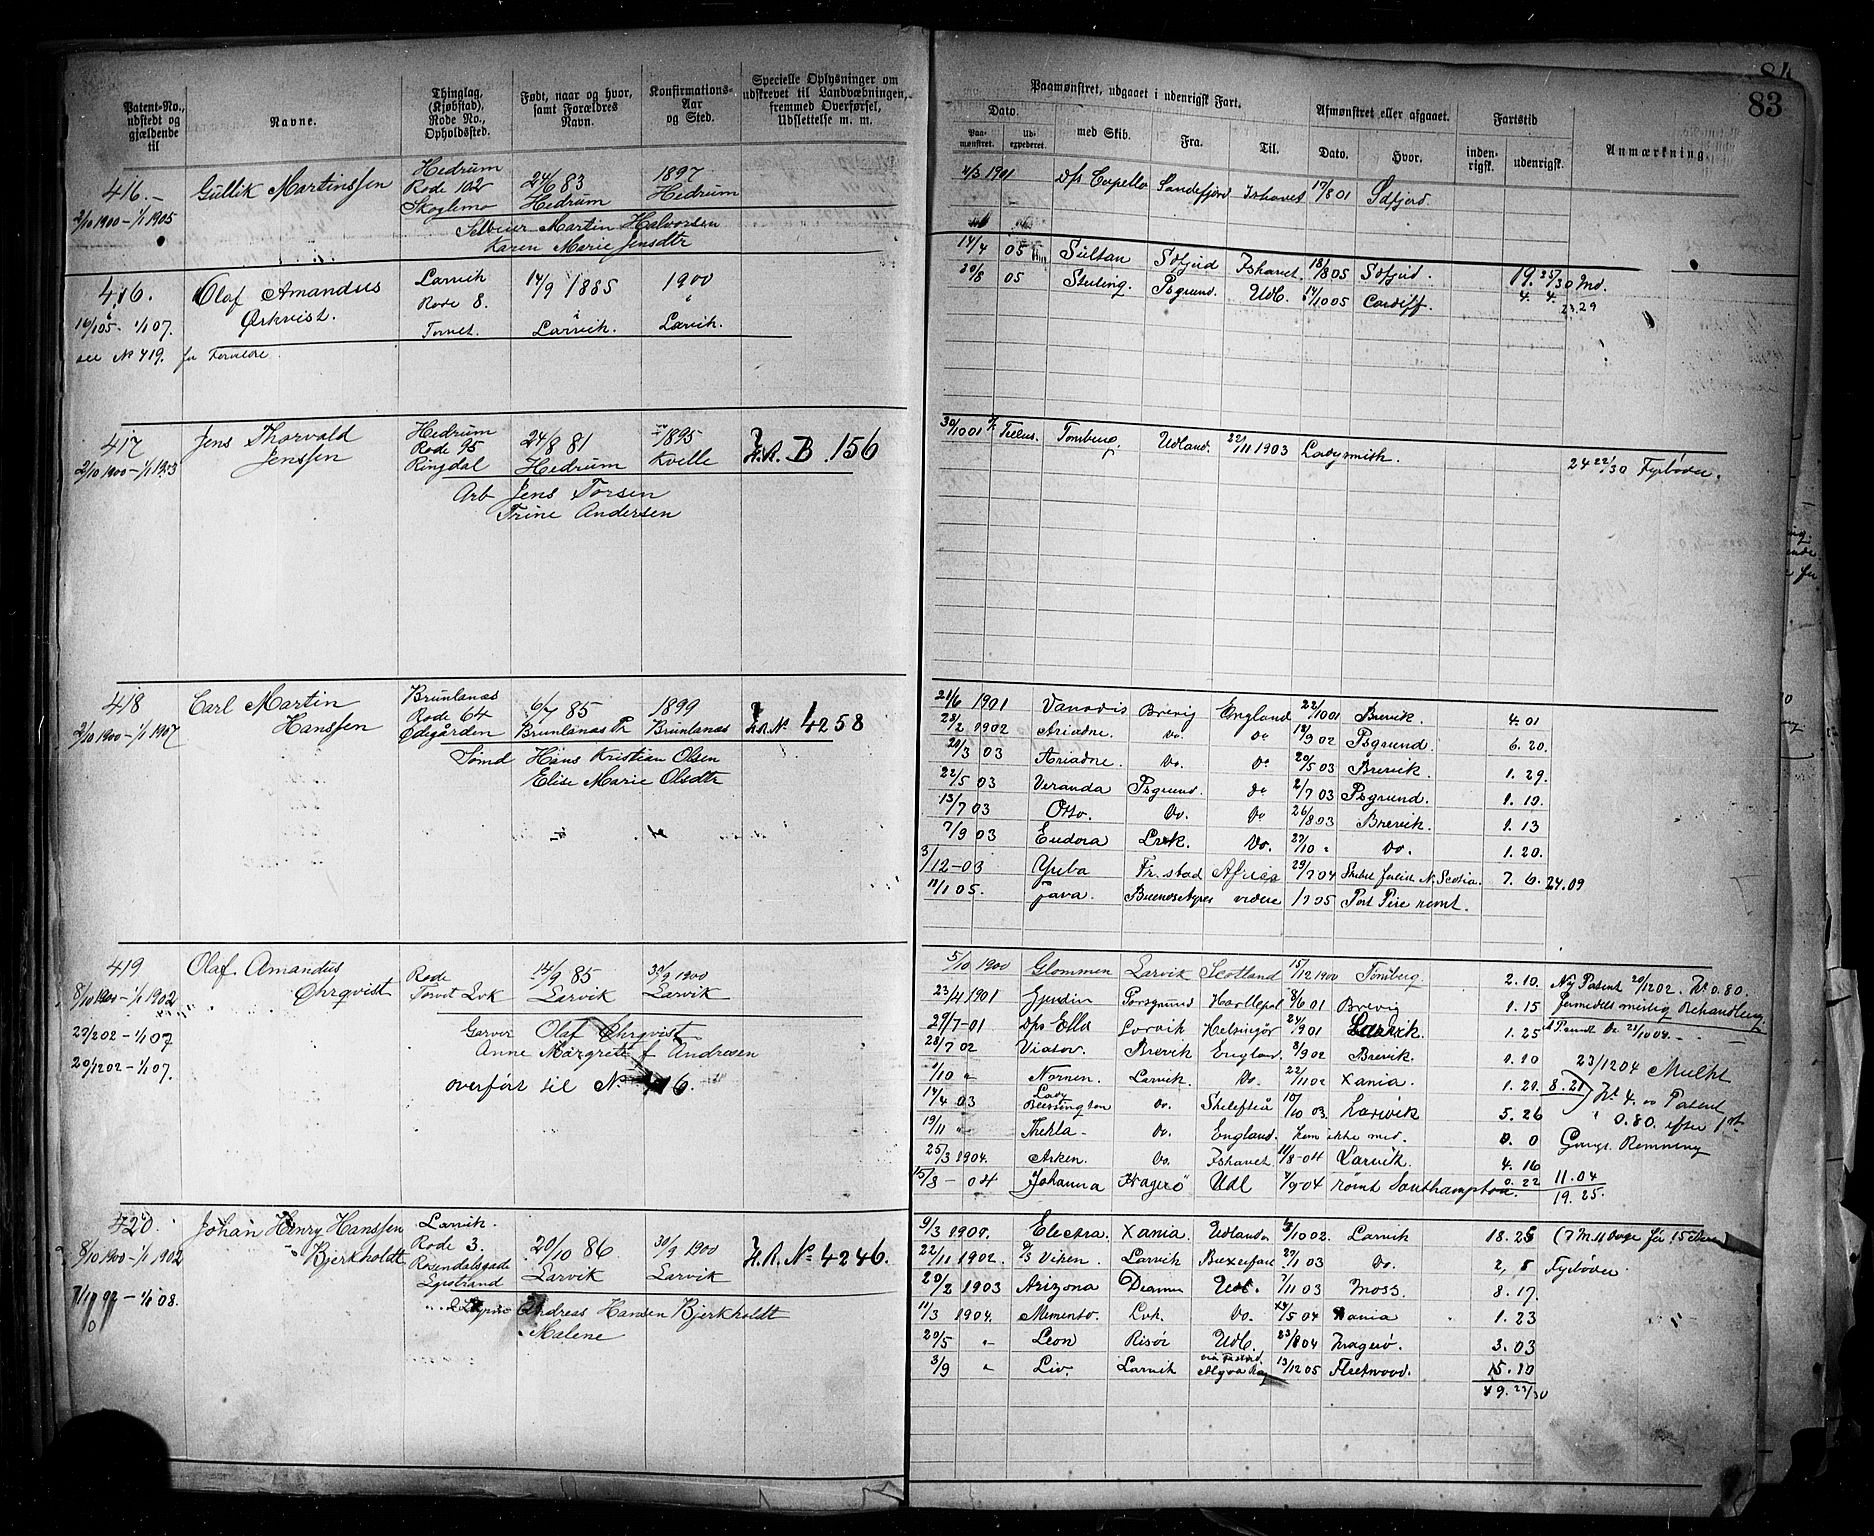 84
83
Patent-No., udstedt og gjældende til
Navne.
Thinglag, (Kjøbstad), Rode No., Opholdssted.
Født, naar og hvor, samt Forældres Navn.
Konfirmations-Aar og Sted.
Specielle Oplysninger om udskrevet til Landvæbningen, fremmed Overførsel, Udslettelse m. m.
Paamønstret, udgaaet i udenrigsk Fart.
Dato.
Paa-mønstret.
ud-expederet.
med Skib.
Fra.
Til.
Afmønstret eller afgaaet.
Dato.
Hvor.
Fartstid
inden-rigsk.
udenrigsk.
Anmærkning.
416. Gullik Martinssen Hedrum 24/6 83 1897
2/10 1900 - 1/1 1905 Rode 102 Hedrum Hedrum
Skoglemo
Selveier Martin Halvorsen
Karen Marie Jensdtr
4/3 1901 D/s Capella Sandefjord Ishavet 17/8 01 Sdfjord.
416. Olaf Amandus Larvik 14/9 1885 1900
Ørkvist. Rode 8.
16/1 05 - 1/1 07. Torvet Larvik. Larvik.
see No 419. for Forældre.
14/4 05 Sultan Sdfjord Ishavet 18/8 05 Sdfjord. 19. 25/30 Md.
29/8 05 Sterling. Psgrund. Udl. 14/10 05 Cardiff 4. 4.
23.29
417 Jens Thorvald Hedrum 24/8 81 1895
Jenssen Rode 95
2/10 1900 - 1/1 1903 Ringdal Hedrum Kvelle H.R. B. 156
Arb Jens Torsen
Trine Andersen
30/10 01 Tellus. Tønsberg Udland. 22/11 1903 Ladysmith. 24 22/30 Fyrbøder.
418 Carl Martin Brunlanæs 6/7 85 1899
Hanssen Rode 64
2/10 1900 - 1/1 1907 Ødegården Brunlanæs Pr Brunlanæs H.R. No 4258
Sømd Hans Kristian Olsen
Elise Marie Olsdtr
21/6 1901 Vanadis Brevig England 22/10 01 Brevik. 4.01
28/2 1902 Ariadne. Do Do 12/9 02 Psgrund. 6.20.
20/3 03 Ariadne. Do. Do 20/5 03 Brevik. 1.29.
22/5 03 Veranda Psgrund. do 2/7 03 Psgrund. 1.10.
13/7 03 Otto. Do. Do 26/8 03 Brevik. 1.13
7/9 03 Eudora Lvk. Do. 27/10 " Do. 1.20.
3/12-03 Fr.stad Africa 29/7 04 N. Scotia. 7.6. 24.09
11/1 05. Java. Buenos Ayres videre 1/7 05 Port Pire rømt.
419 Olaf Amandus Rode 14/9 85 30/9 1900
Ehrqvist Torvet Lvk Larvik Larvik
8/10 1900 - 1/1 1902
22/2 02 - 1/1 07
20/12 02 - 1/1 07.
Garver Olaf Ehrqvist
Anne Margrete f Andresen
overført til No 416.
5/10 1900 Glommen Larvik Scotland 15/12 1900 Tønsberg 2.10. Ny Patent 20/12 02. Kr 0.80.
23/4 1901 Gjendin Porsgrund Hartlepol 8/6 01 Brevig 1.15 formedelst uriktig Behandling
29/7-01 D/s Ella Larvik Helsingør 24/9 01 Larvik 1.25
28/7 02 Viator. Brevik England. 8/9 02 Brevik. 1.10 23/12 04 Mulkt
/10 " Nornen. Larvik. Do. 22/11 02 Xania. 1.20. 8.21 Kr 4. oo Patent
14/4 03 Lady Beersington Do. Skelefteå 10/10 03. Larvik 5.26 0.80. efter
19/11 " Thekla Do. England. kom ikke med. 0.0
25/3 1904. Arken. Do. Ishavet. 11/8-04 Larvik. 4.16
15/8 - 04 Johanna Kragerø Udl 7/9 04 rømt Southampton. 0.22 11.04
19.25.
420. Johan Henry Hanssen Larvik. 20/10 86. 30/9 1900
Bjerkholdt Rode 3.
8/10 1900 - 1/1 1902 Rosendalsgade Larvik Larvik H.R. No 4246.
- 1/1 08. Lystrand
Andreas Hansen Bjerkholdt
Malene
9/3 1900. Electra. Xania. Udlandet /10 02. Larvik 18.25
22/11 1902. D/S Viken. Larvik 27/1 03 Do. 2,5 Fyrbøder
20/2 1903 Arizona Dramm Udl. 7/11 03 Moss. 8.17.
11/3 1904. Memento. Lvk. Do. /5 04 Xania 1.23
20/5 " Leon Risör Udl. 23/8 04 Kragerø. 3.03
3/9 " Liv. Larvik Algoa Bay 13/12 05 Fleetwood. 15.10
49. 23/30